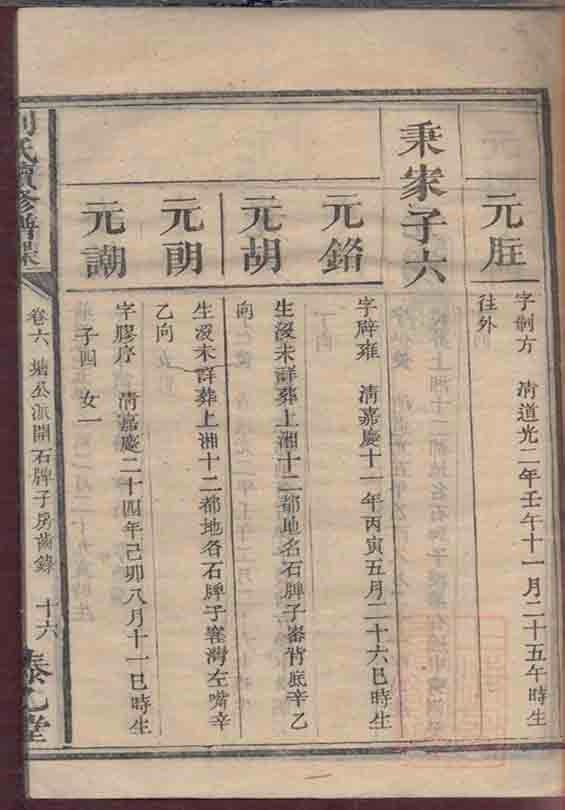 元㽵
字制方 清道光二年壬午十一月二十五午時生
往外
秉家子六
元銘
字辟雍 清嘉慶十一年丙寅五月二十六巳時生
元胡
生沒未詳葬上湘十二都地名石牌子崙背底辛乙
向
元朗
生沒未詳葬上湘十二都地名石牌子窰灣左嘴辛
乙向
元謝
字膠序 清嘉慶二十四年己卯八月十一巳時生
子四 女一
劉氏續修譜牒
卷六 塘公派開石牌子房齒錄 十六